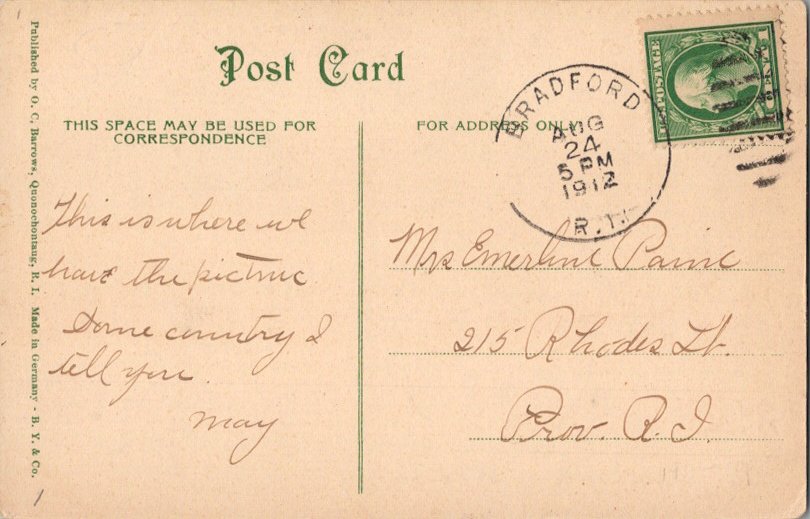 Post Card
THIS SPACE MAY BE USED FOR
CORRESPONDENCE
FOR ADDRESS ONLY
BRADFORD
AUG
24
5 PM
1912
R.I.
U.S. POSTAGE
Published by O. C. Barrows, Quonochontaug, R. I. Made in Germany - B. Y. & Co.
This is where we
have the picture
Some country I
tell you.
May
Mrs Emerline Paine
215 Rhodes St.
Prov. R. I.